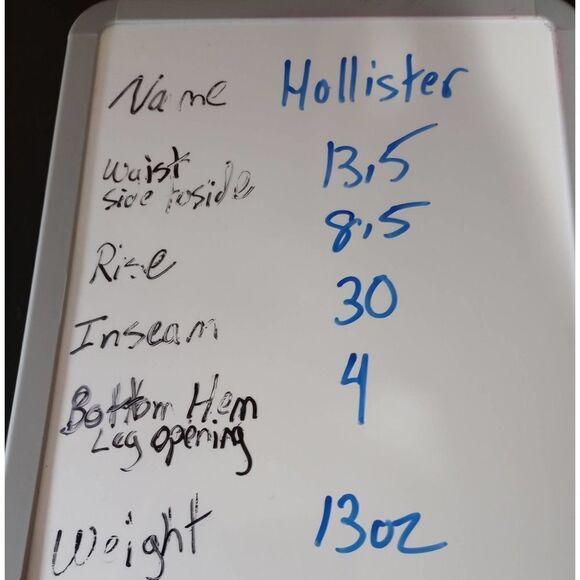 Name Hollister
Waist 13.5
side toside
8.5
Rise
Inseam 30
Bottom Hem 4
Leg opening
Weight 13oz